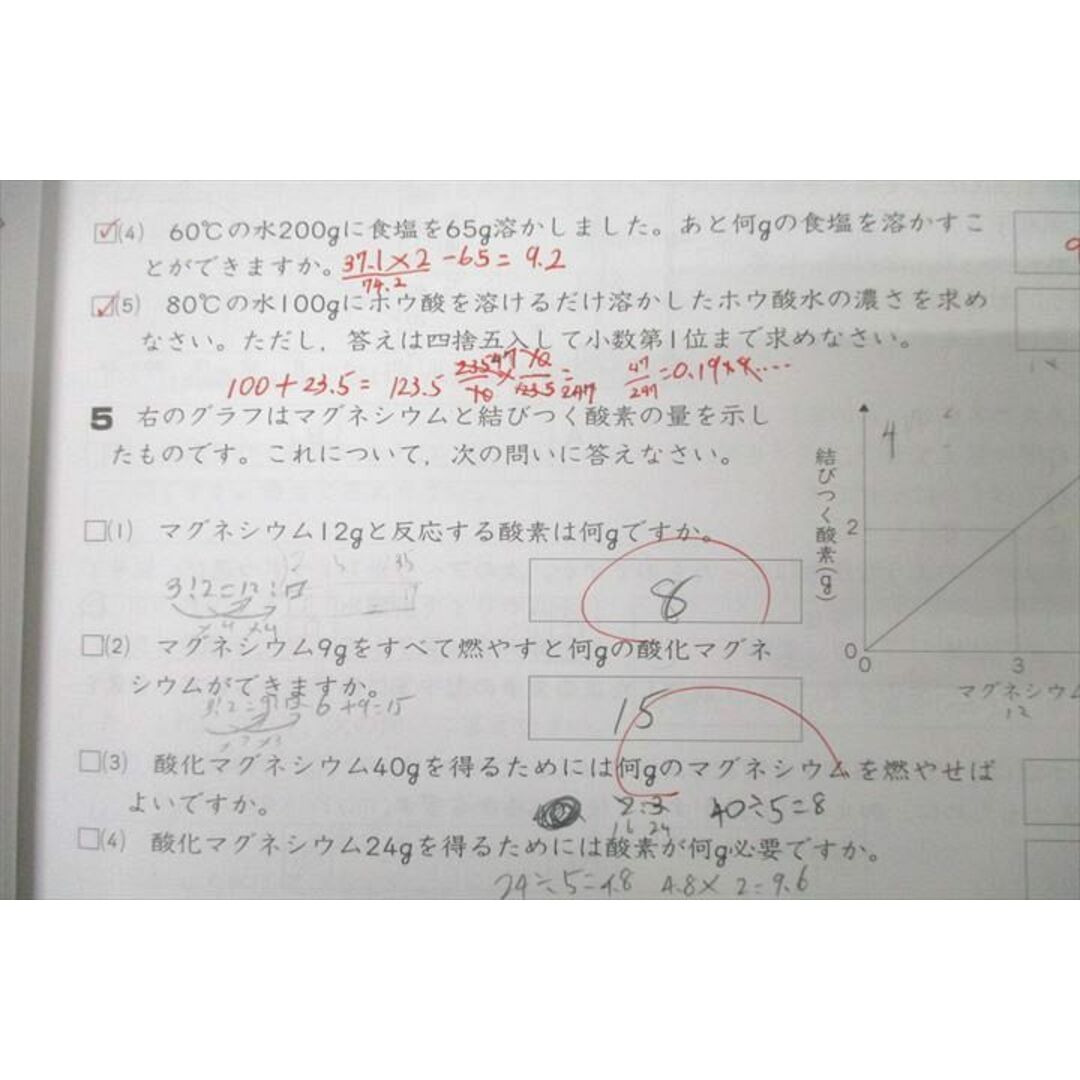 (4) 60℃の水200gに食塩を65g溶かしました。あと何gの食塩を溶かすこ
とができますか。 37.1×2 -65= 9.2
74.2
(5) 80℃の水100gにホウ酸を溶けるだけ溶かしたホウ酸水の濃さを求め
なさい。ただし，答えは四捨五入して小数第1位まで求めなさい。
100+23.5= 123.5
47/247 =0.19
5 右のグラフはマグネシウムと結びつく酸素の量を示し
たものです。これについて，次の問いに答えなさい。
4
結びつく酸素(g)
2
0
0
3
マグネシウム
12
(1) マグネシウム12gと反応する酸素は何gですか。
3:2=12:□
×4 ×4
8
(2) マグネシウム9gをすべて燃やすと何gの酸化マグネ
シウムができますか。
3:2=9:□ 6+9=15
15
(3) 酸化マグネシウム40gを得るためには何gのマグネシウムを燃やせば
よいですか。
2:3 40÷5=8
16 24
(4) 酸化マグネシウム24gを得るためには酸素が何g必要ですか。
24÷5=4.8 4.8×2=9.6